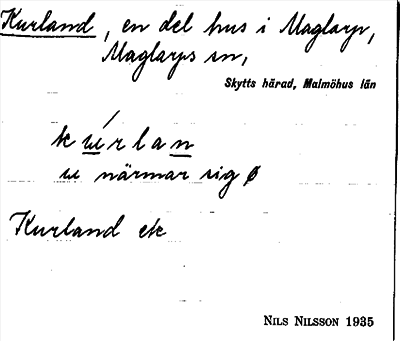 Kurland, en del hus i Maglarp,
Maglarps sn,
Skytts härad, Malmöhus län
kúrlan
u närmar sig ø
Kurland etc
NILS NILSSON 1935